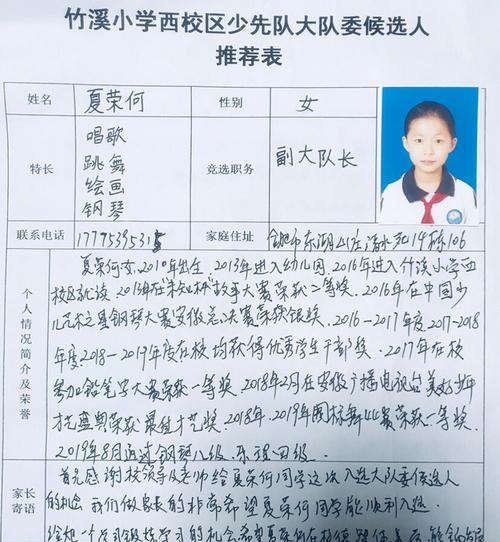 竹溪小学西校区少先队大队委候选人
推荐表
姓名 夏荣何 性别 女
特长 唱歌 跳舞 绘画 钢琴 竞选职务 副大队长
联系电话 家庭住址 合肥市东湖山庄 19栋106
个人情况简介及荣誉
夏荣何,女,2010年出生,2013年进入幼儿园,2016年进入竹溪小学西
校区就读,2015年在 杯故事大赛荣获二等奖,2016年在中国少
儿艺术之星钢琴大赛安徽总决赛荣获银奖,2016-2017年度,2017-2018
年度,2018-2019年度在校均获得优秀学生干部奖,2017年在校
参加铅笔字大赛荣获一等奖,2018年2月在安徽广播电视台美好少年
才艺盛典荣获最佳才艺奖,2018年,2019年国标舞 大赛荣获一等奖,
2019年8月通过钢琴八级,乐理四级。
家长寄语
首先感谢校领导及老师给夏荣何同学这次入选大队委候选人
的机会,我们做家长的非常希望夏荣何同学能顺利入选
给她一个 锻炼学习的机会希望夏荣何在